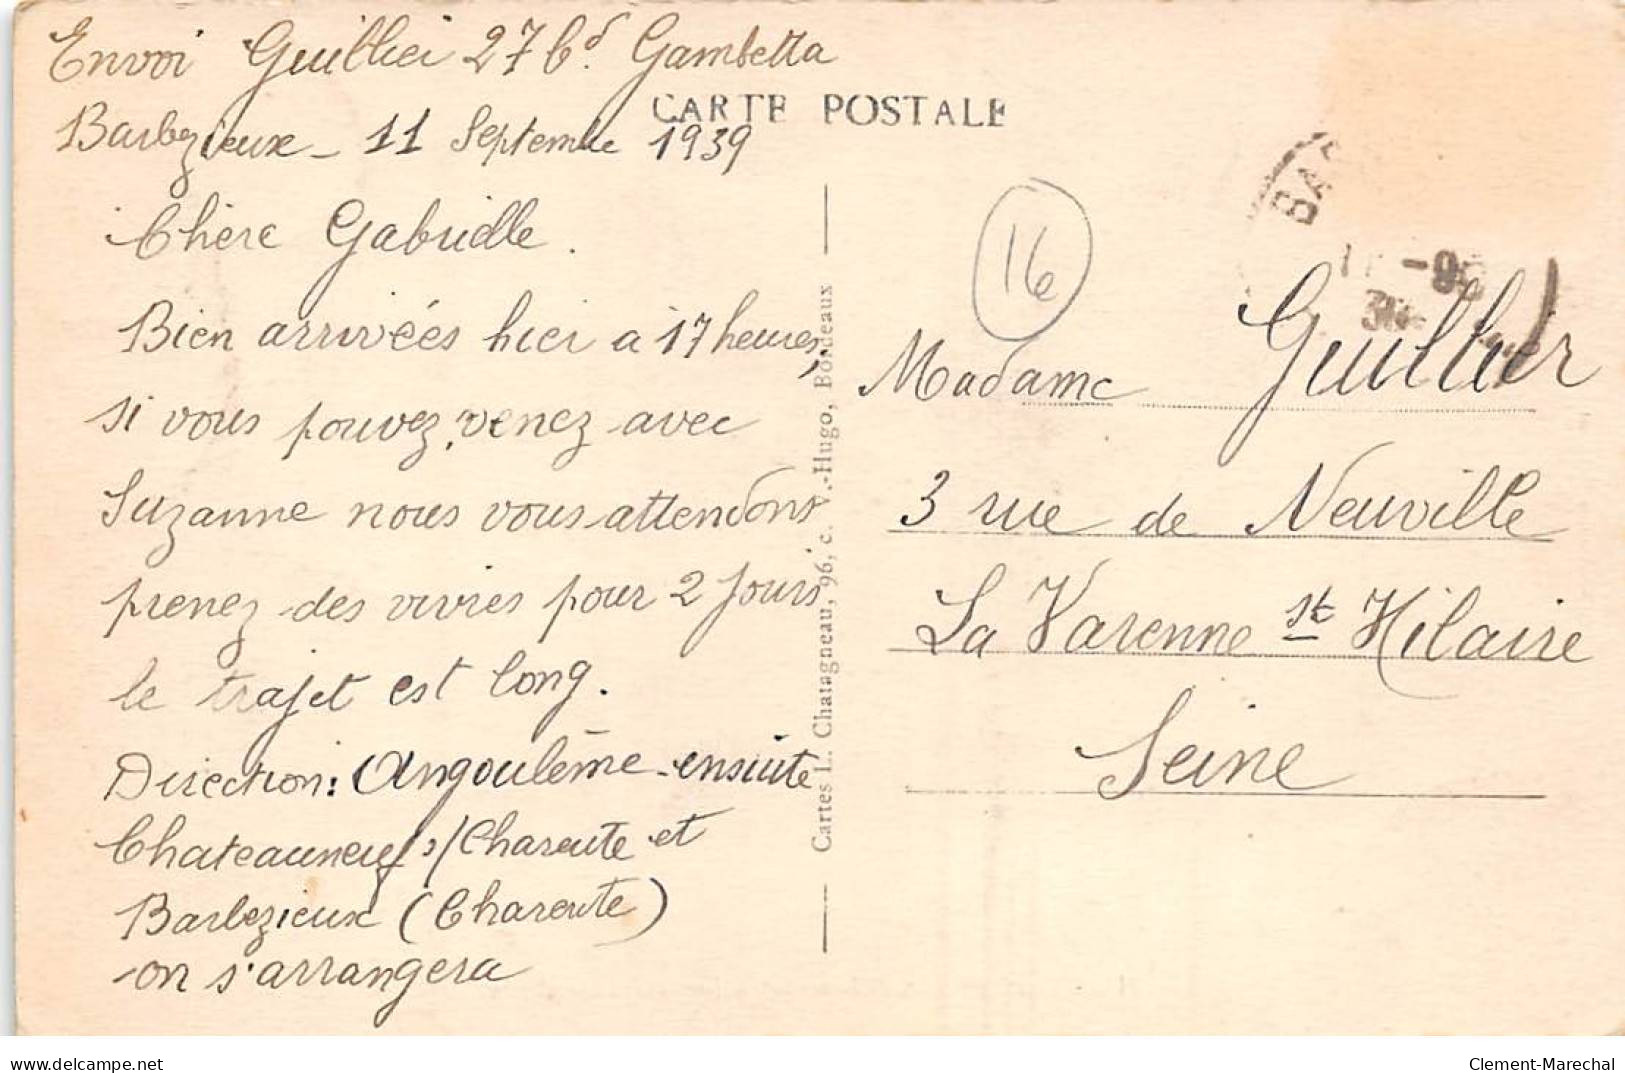 Envoi Guillier 27 bd. Gambetta
CARTE POSTALE
Barbezieux - 11 Septembre 1939
Chère Gabrielle.
Bien arrivées hier à 17 heures,
si vous pouvez, venez avec
Suzanne nous vous attendons
prenez des vivres pour 2 jours
le trajet est long.
Direction: Angoulême - ensuite
Chateauneuf s/Charente et
Barbezieux (Charente)
on s'arrangera
Cartes L. Chatagneau, 96, c. V.-Hugo, Bordeaux
16
BA
Madame Guillier
3 rue de Neuville
La Varenne St Hilaire
Seine
delcampe.net
Clement-Marechal